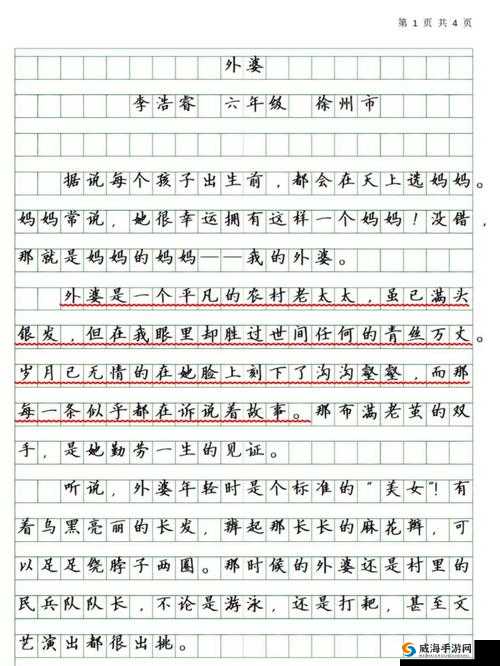 第 1 页 共 4 页
外婆
李浩睿 六年级 徐州市
据说每个孩子出生前，都会在天上选妈妈。
妈妈常说，她很幸运拥有这样一个妈妈！没错，
那就是妈妈的妈妈——我的外婆。
外婆是一个平凡的农村老太太，虽已满头
银发，但在我眼里却胜过世间任何的青丝万丈。
岁月已无情的在她脸上刻下了沟沟壑壑，而那
每一条似乎都在诉说着故事。那布满老茧的双
手，是她勤劳一生的见证。
听说，外婆年轻时是个标准的“美女”！有
着乌黑亮丽的长发，辫起那长长的麻花辫，可
以足足绕脖子两圈。那时侯的外婆还是村里的
民兵队队长，不论是游泳，还是打耙，甚至文
艺演出都很出挑。
威海手游网